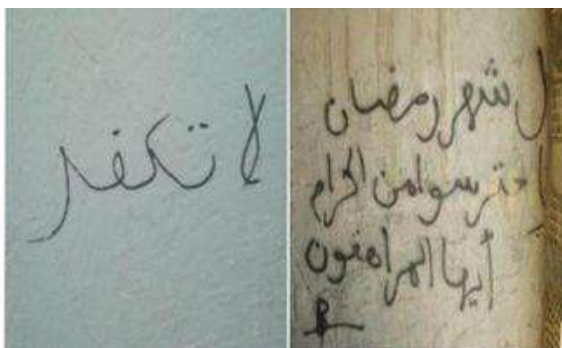 لا تكفر
ل شهر رمضان
احترسوا من الحرام
أيها المراهقون